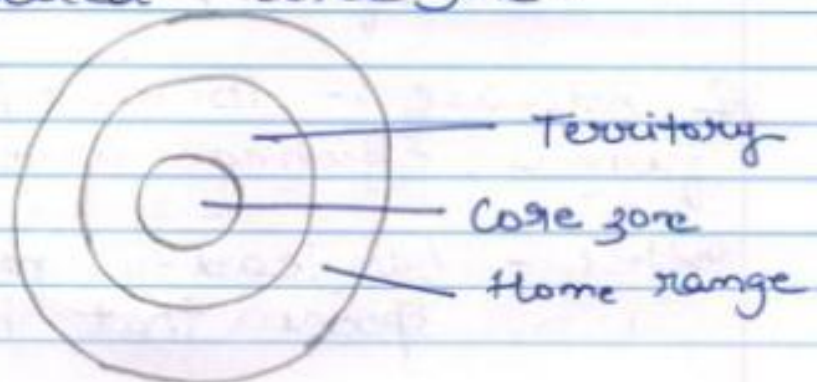 Territory
Core zone
Home range